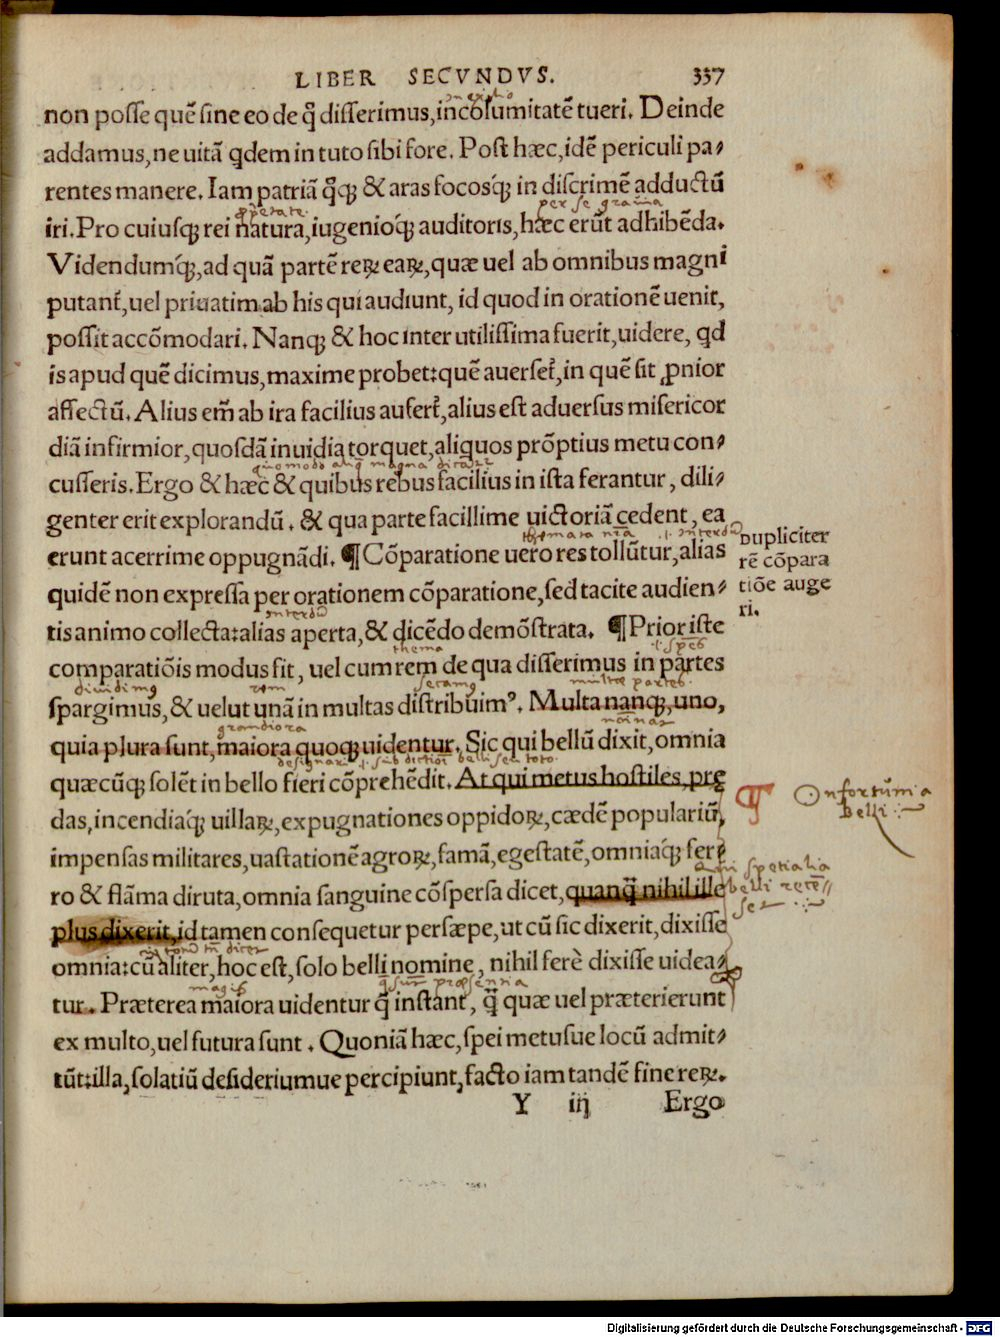 LIBER SECVNDVS. 337
non posse quē sine eo de q̄ disserimus, incolumitatē tueri. Deinde
addamus, ne uitā qdem in tuto sibi fore. Post hæc, idē periculi pa⸗
rentes manere. Iam patriā qq; & aras focosq́; in discrimē adductū
iri. Pro cuiusq; rei natura, iugenioq́; auditoris, hæc erūt adhibēda.
Videndumq́;, ad quā partē reꝝ eaꝝ, quæ uel ab omnibus magni
putant̄, uel priuatim ab his qui audiunt, id quod in orationē uenit,
possit accōmodari. Nanq; & hoc inter utilissima fuerit, uidere, qd
is apud quē dicimus, maxime probet: quē auerset̄, in quē sit ꝓnior
affectū. Alius em̄ ab ira facilius aufert̄, alius est aduersus misericor
diā infirmior, quosdā inuidia torquet, aliquos prōptius metu con⸗
cusseris. Ergo & hæc & quibus rebus facilius in ista ferantur, dili⸗
genter erit explorandū. & qua parte facillime uictoriā cedent, ea
erunt acerrime oppugnādi. ¶ Cōparatione uero res tollūtur, alias
Dupliciter
rē cōpara
tiōe auge
ri.
quidē non expressa per orationem cōparatione, sed tacite audien⸗
tis animo collecta: alias aperta, & dicēdo demōstrata. ¶ Prior iste
thema
comparatiōis modus fit, uel cum rem de qua disserimus in partes
diuidimꝰ rem secamꝰ multæ partes.
spargimus, & uelut unā in multas distribuimꝰ. Multa nanq;, uno,
grandiora
quia plura sunt, maiora quoq; uidentur. Sic qui bellū dixit, omnia
quæcūq; solēt in bello fieri cōprehēdit. At qui metus hostiles, præ
Infortūnia
belli
das, incendiaq́; uillaꝝ, expugnationes oppidoꝝ, cædē populariū,
impensas militares, uastationē agroꝝ, famā, egestatē, omniaq́; fer⸗
Qui spetialia
belli recē⸗
set
ro & flāma diruta, omnia sanguine cōspersa dicet, quanq̄ nihil ille
plus dixerit, id tamen consequetur persæpe, ut cū sic dixerit, dixisse
omnia: cū aliter, hoc est, solo belli nomine, nihil ferè dixisse uidea⸗
magis
tur. Præterea maiora uidentur q̄ instant, q̄ quæ uel præterierunt
ex multo, uel futura sunt. Quoniā hæc, spei metusue locū admit⸗
tūt: illa, solatiū desideriumue percipiunt, facto iam tandē fine reꝝ.
Y iij Ergo
Digitalisierung gefördert durch die Deutsche Forschungsgemeinschaft - DFG